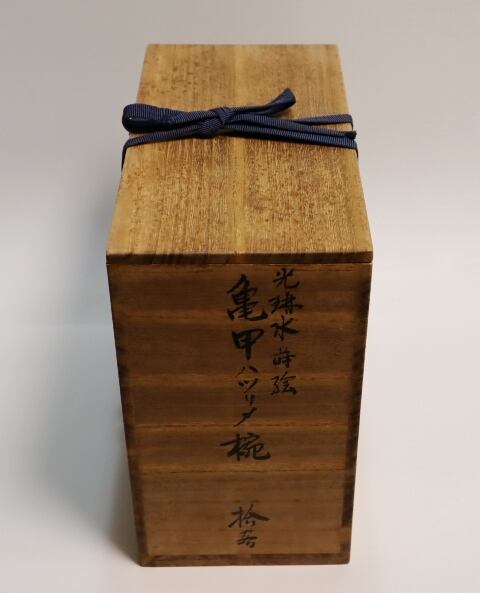 光琳水蒔絵
亀甲ハツリメ椀
拾客